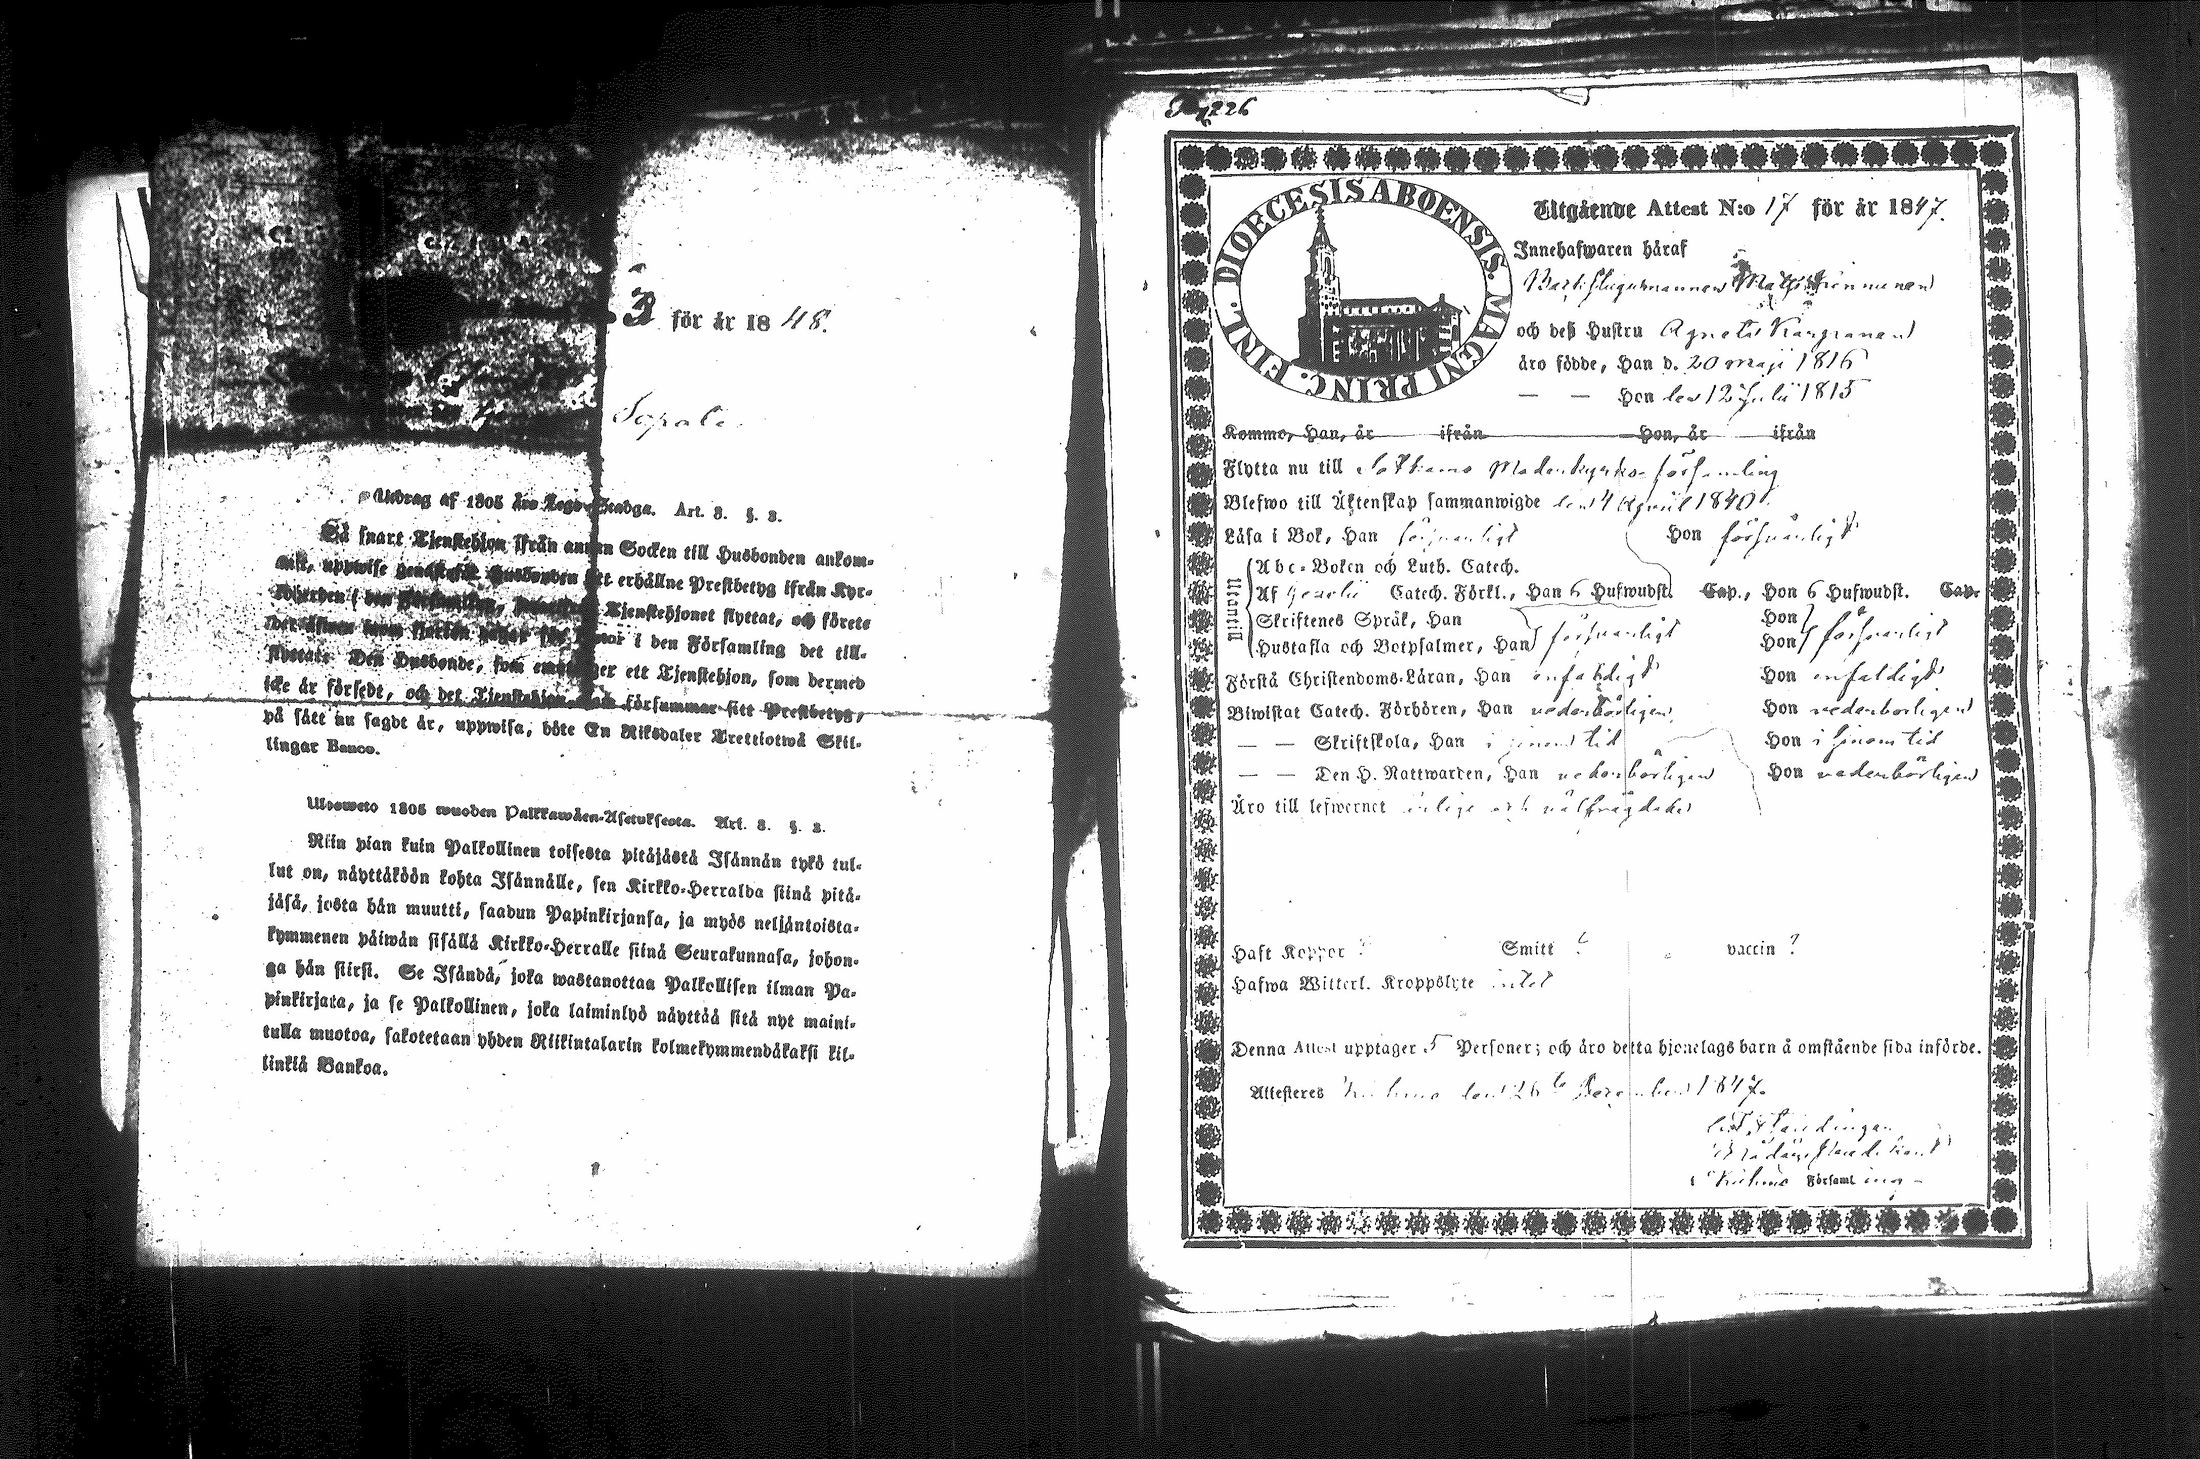 3 för år 1848.
Sopala.
Utdrag af 1805 års Lego-Stadga. Art. 3. §. 3.
Så snart Tjenstehjon ifrån annan Socken till Husbonden ankom-
mit, uppwise genast Husbonden ett erhållne Prestbetyg ifrån Kyr-
Tjenstehjonet flyttat, och förete
i den Församling det till-
flyttat. Den Husbonde, som emottager ett Tjenstehjon, som dermed
icke är försedt, och det Tjenstehjon, som försummar sitt Prestbetyg,
på sätt nu sagdt är, uppwisa, böte En Riksdaler Trettiotwå Skil-
lingar Banco.
Ulosweto 1805 wuoden Palkkawäen-Asetuksesta. Art. 3. §. 3.
Niin pian kuin Palkollinen toisesta pitäjästä Isännän tykö tul-
lut on, näyttäköön kohta Isännälle, sen Kirkko-Herralda siinä pitä-
jäsä, josta hän muutti, saadun Papinkirjansa, ja myös neljäntoista-
kymmenen päiwän sisällä Kirkko-Herralle siinä Seurakunnasa, johon-
ga hän siirsi. Se Isändä, joka wastanottaa Palkollisen ilman Pa-
pinkirjata, ja se Palkollinen, joka laiminlyö näyttää sitä nyt maini-
tulla muotoa, sakotetaan yhden Riikintalarin kolmekymmendäkaksi kil-
linkiä Bankoa.
226
DIOECESIS ABOENSIS. MAGNI PRINC. FINL.
Utgående Attest N:o 17 för år 1847.
Innehafwaren häraf
och deß Hustru Agneta
äro födde, Han d. 20 maji 1816
— — Hon den 12 Julii 1815
Kommo, Han, år ifrån Hon, år ifrån
Flytta nu till Sotkamo Moderkyrko-församling
Blefwo till Äktenskap sammanwigde den 4 April 1840.
Läsa i Bok, Han försvarligt Hon försvarligt
Utantil
Abc-Boken och Luth. Catech.
Af Gezelii Catech. Förkl., Han 6 Hufwudst. Cap., Hon 6 Hufwudst. Cap.
Skriftenes Språk, Han Hon
Hustafla och Botpsalmer, Han försvarligt Hon försvarligt
Förstå Christendoms-Läran, Han enfaldigt Hon enfaldigt
Biwistat Catech. Förhören, Han vederbörligen Hon vederbörligen
— — Skriftskola, Han i sinom tid Hon i sinom tid
— — Den H. Nattwarden, Han vederbörligen Hon vederbörligen
Äro till lefwernet ärlige och välfrägdade
Haft Koppor ? Smitt ? vaccin ?
Hafwa Witterl. Kroppslyte intet
Denna Attest upptager 5 Personer; och äro detta hjonelags barn å omstående sida införde.
Attesteres Kuhmo den 26 December 1847.
Kuhmo Församling